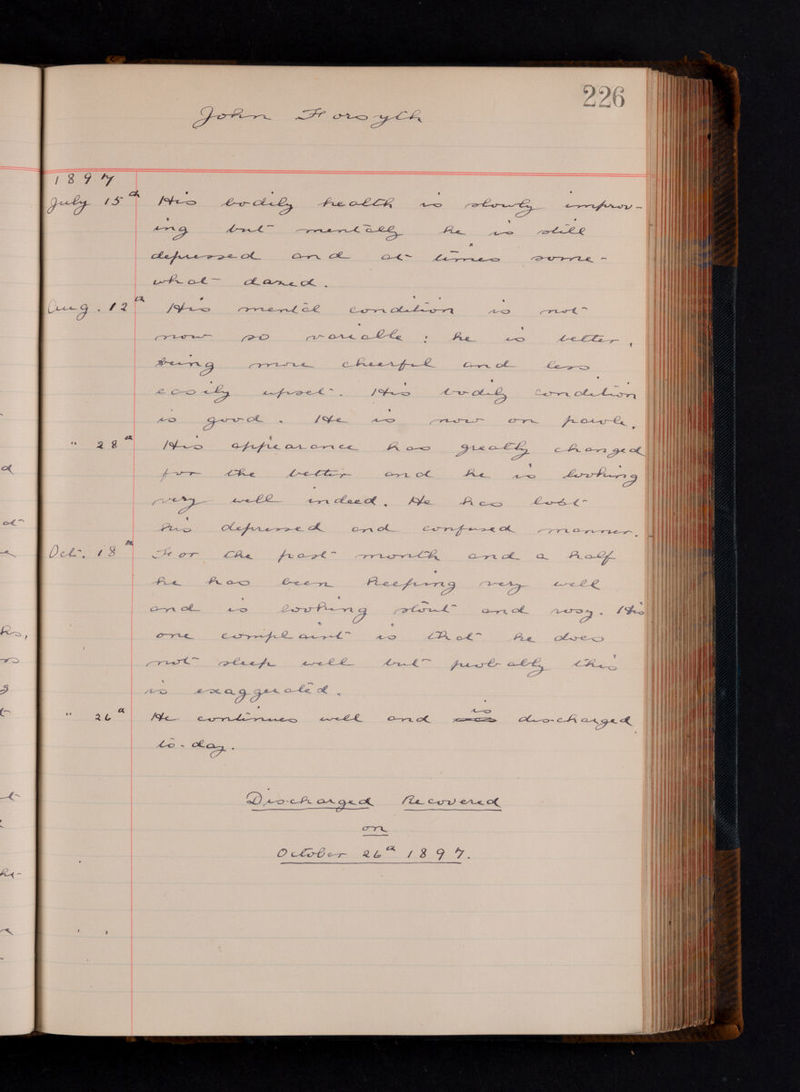 226
John Forsyth
1897
July 15th His bodily health is slowly improv-
ing but mentally he is still
depressed and at times some-
what dazed.
Aug. 12th His mental condition is not
now so variable : he is better,
being more cheerful and less
easily upset. His bodily condition
is good. He is now on parole.
" 28th His appearance has greatly changed
for the better and he is looking
very well indeed. He has lost
his depressed and confused manner.
Oct. 18th For the past month and a half
he has been keeping very well
and is looking stout and rosy. His
one complaint is that he does
not sleep well but probably this
is exaggerated.
" 26th He continues well and is discharged
to-day.
Discharged Recovered
on
October 26th 1897.